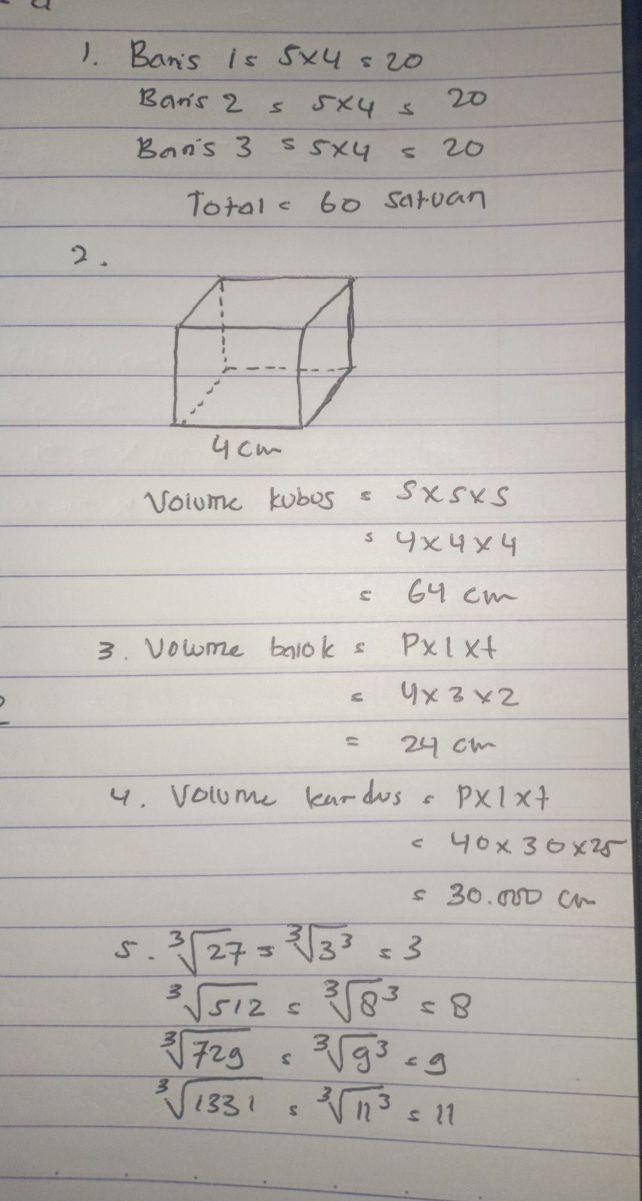 1. Baris 1 = 5x4 = 20
Baris 2 = 5x4 = 20
Baris 3 = 5x4 = 20
Total = 60 satuan
2.
4 cm
Volume kubus = S x S x S
= 4 x 4 x 4
= 64 cm
3. Volume balok = P x l x t
= 4 x 3 x 2
= 24 cm
4. Volume kardus = P x l x t
= 40 x 30 x 25
= 30.000 cm
5. ³√27 = ³√3³ = 3
³√512 = ³√8³ = 8
³√729 = ³√9³ = 9
³√1331 = ³√11³ = 11